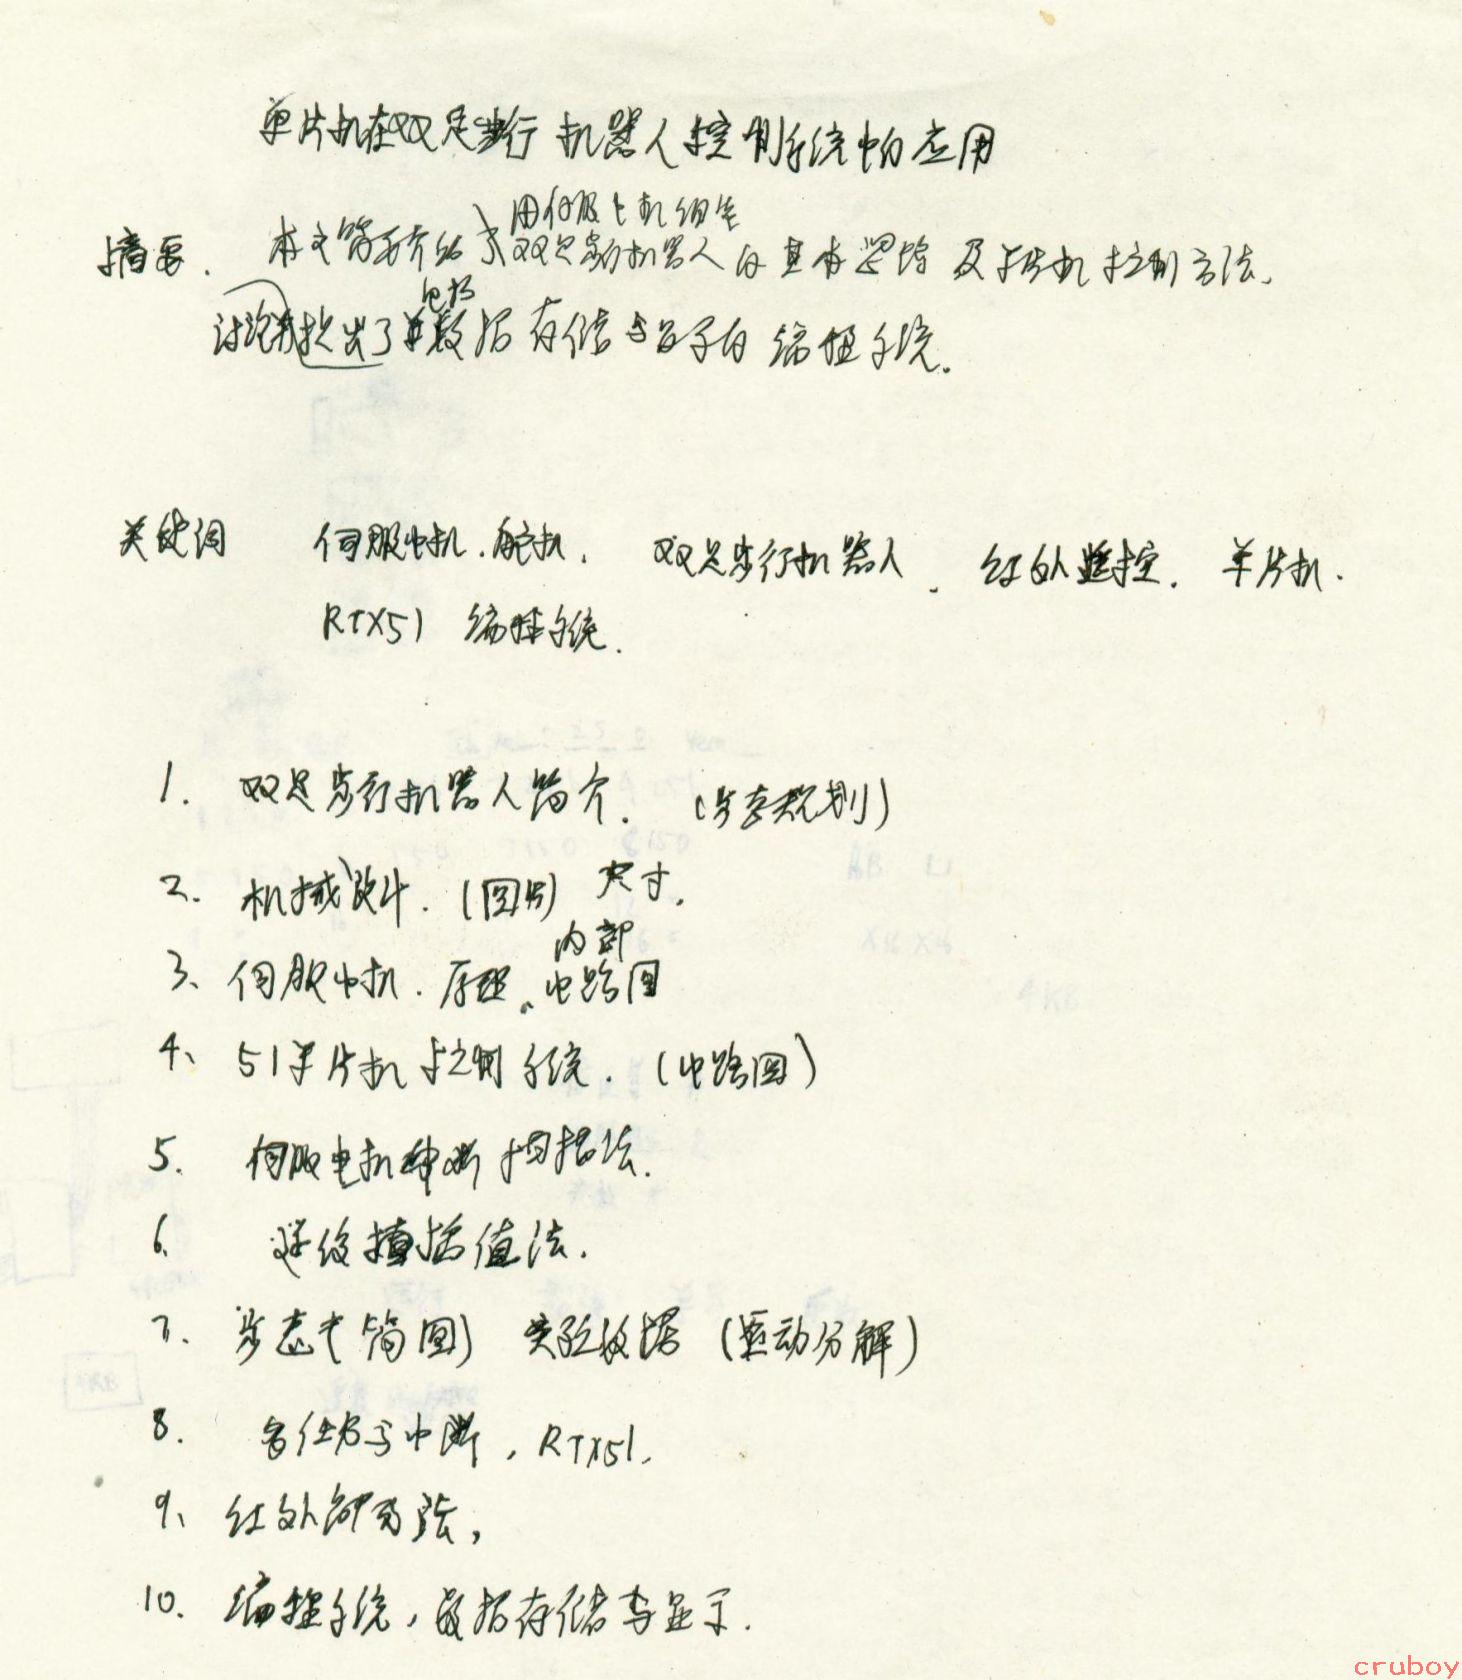 单片机在双足步行机器人控制系统中的应用
用伺服电机组建
摘要. 本文简要介绍了双足步行机器人的基本思路及单片机控制方法.
包括
讨论并提出了数据存储与显示的编程系统.
关键词 伺服电机.舵机. 双足步行机器人. 红外遥控. 单片机.
RTX51 编程系统.
1. 双足步行机器人简介. (步态规划)
2. 机械设计. (图片) 尺寸.
内部
3、伺服电机. 原理. 电路图
4、51单片机控制系统. (电路图)
5. 伺服电机中断扫描法.
6. 逐级插值法.
7. 步态(简图) 实际数据 (运动分解)
8. 多任务与中断, RTX51.
9、红外解码法,
10. 编程系统, 数据存储与显示.
cruboy